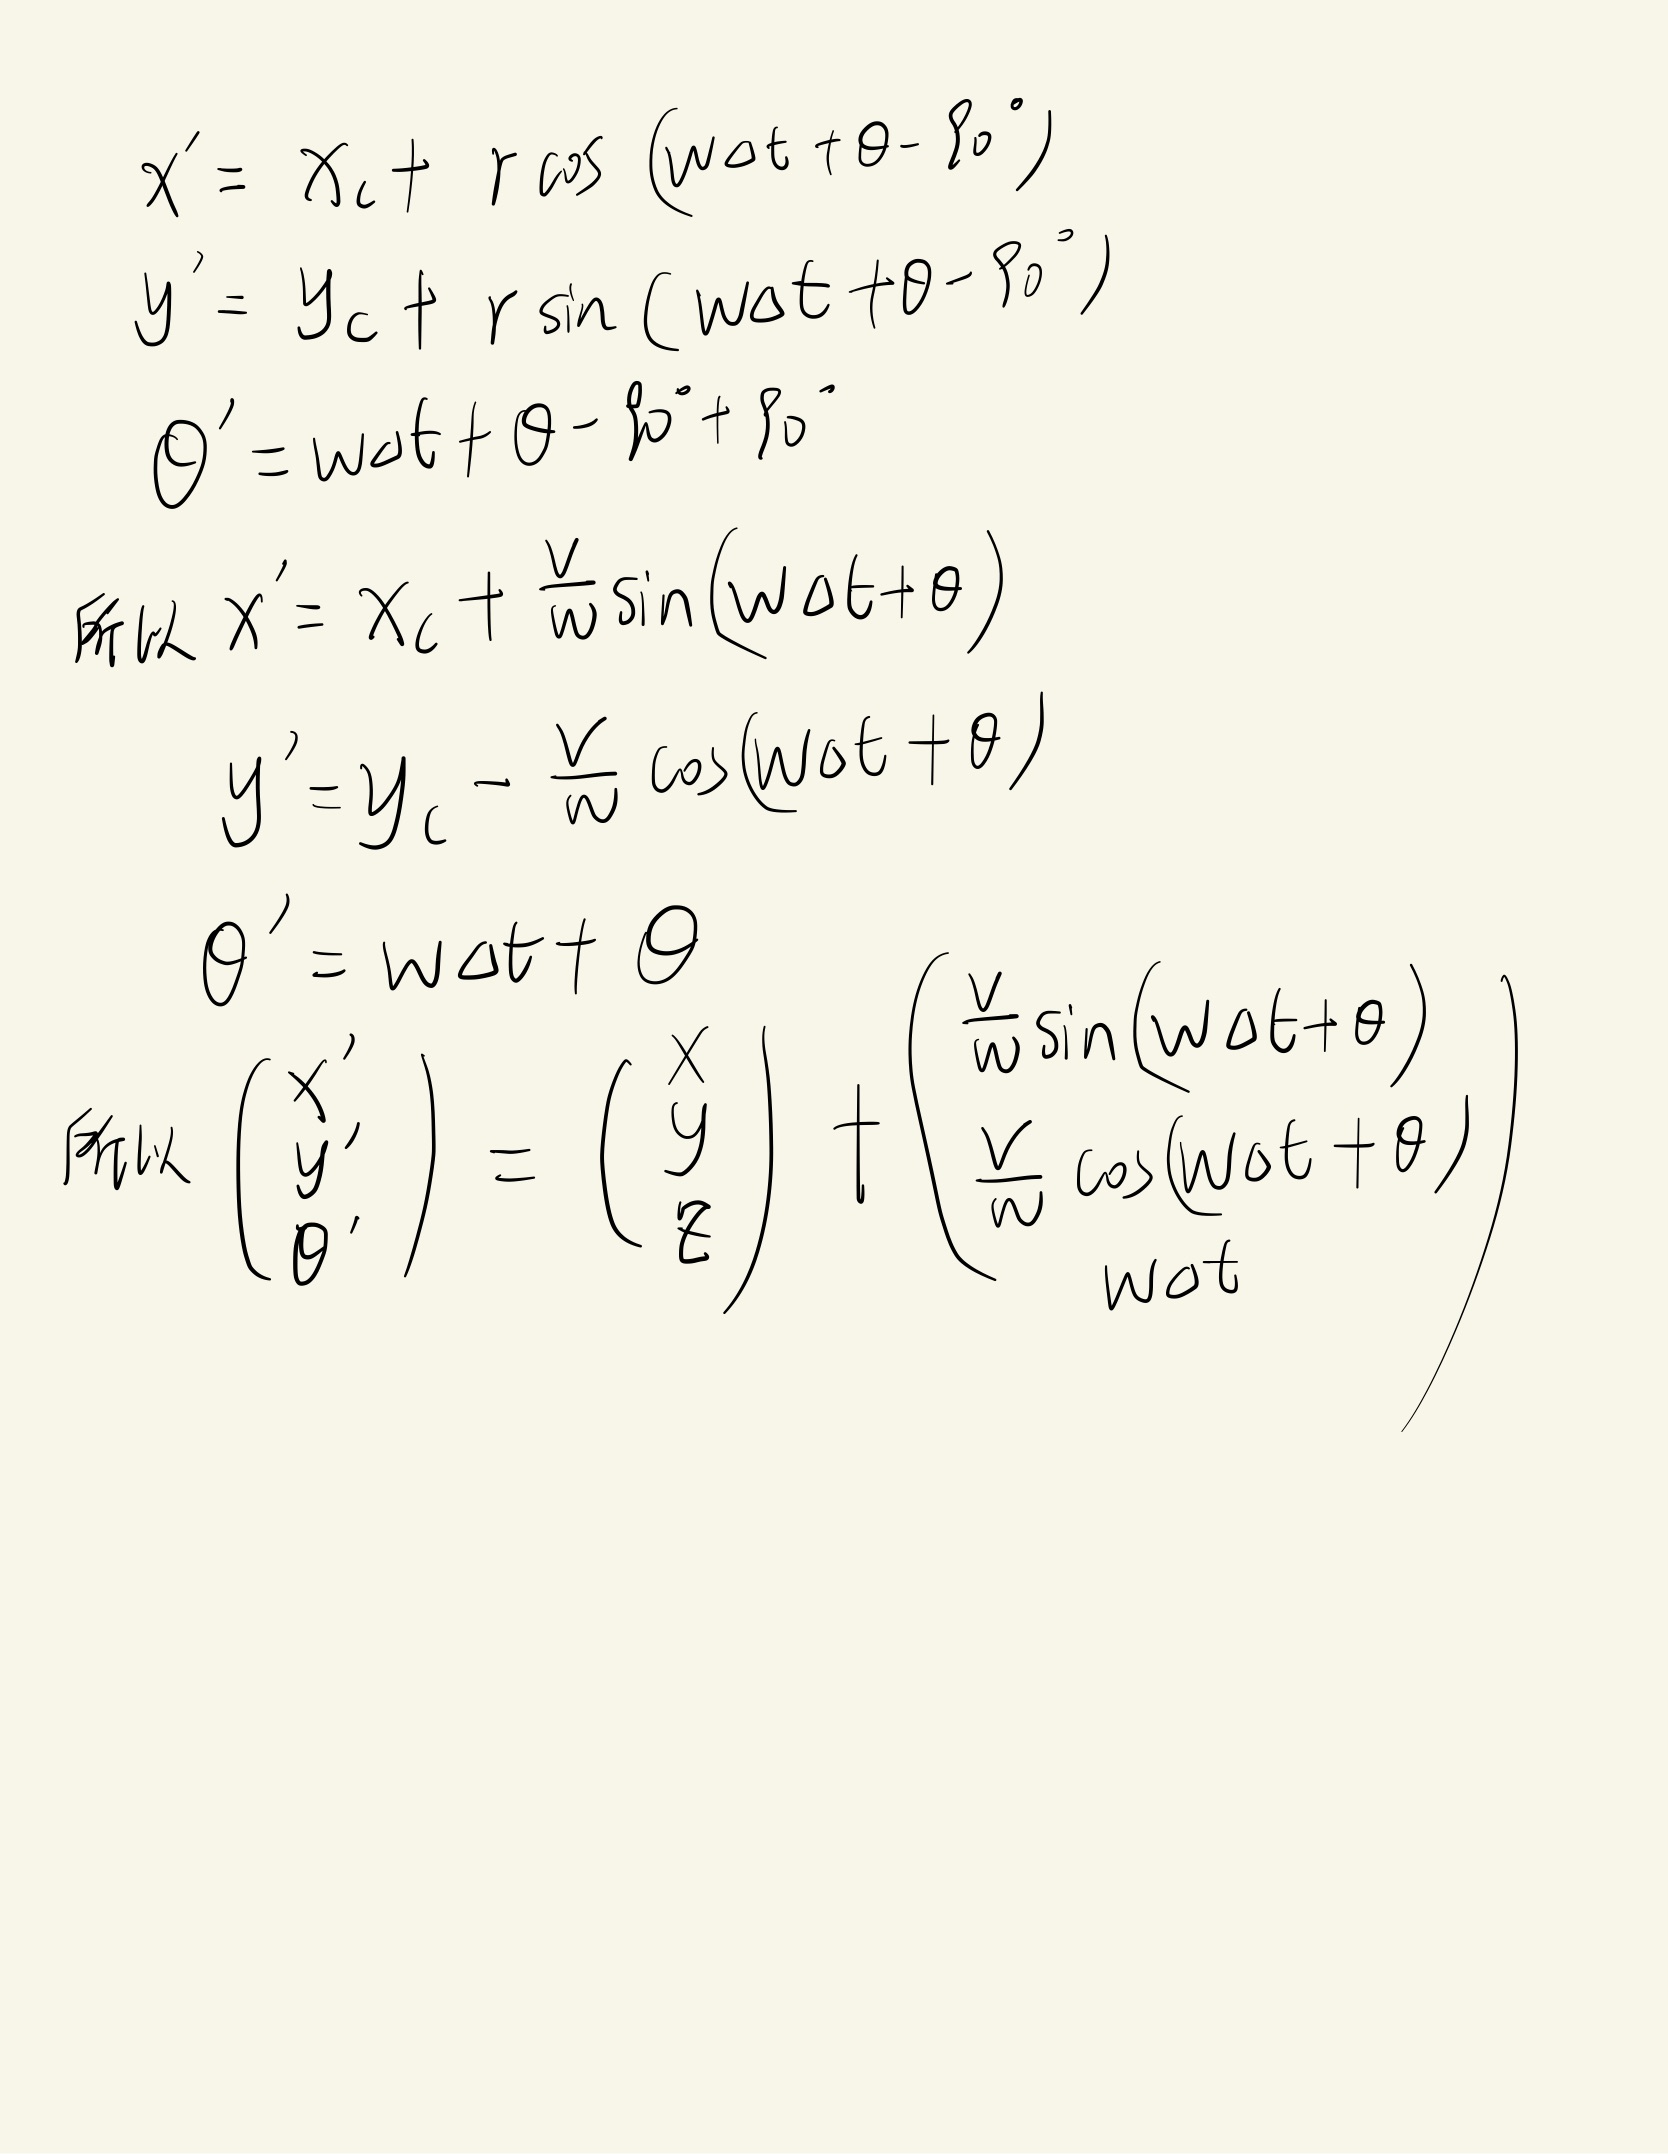 x' = x_c + r cos (wΔt + θ - 90°)
y' = y_c + r sin (wΔt + θ - 90°)
θ' = wΔt + θ - 90° + 90°
所以 x' = x_c + v/w sin(wΔt + θ)
y' = y_c - v/w cos(wΔt + θ)
θ' = wΔt + θ
所以 (x' y' θ') = (x y z) + (v/w sin(wΔt + θ) v/w cos(wΔt + θ) wΔt)